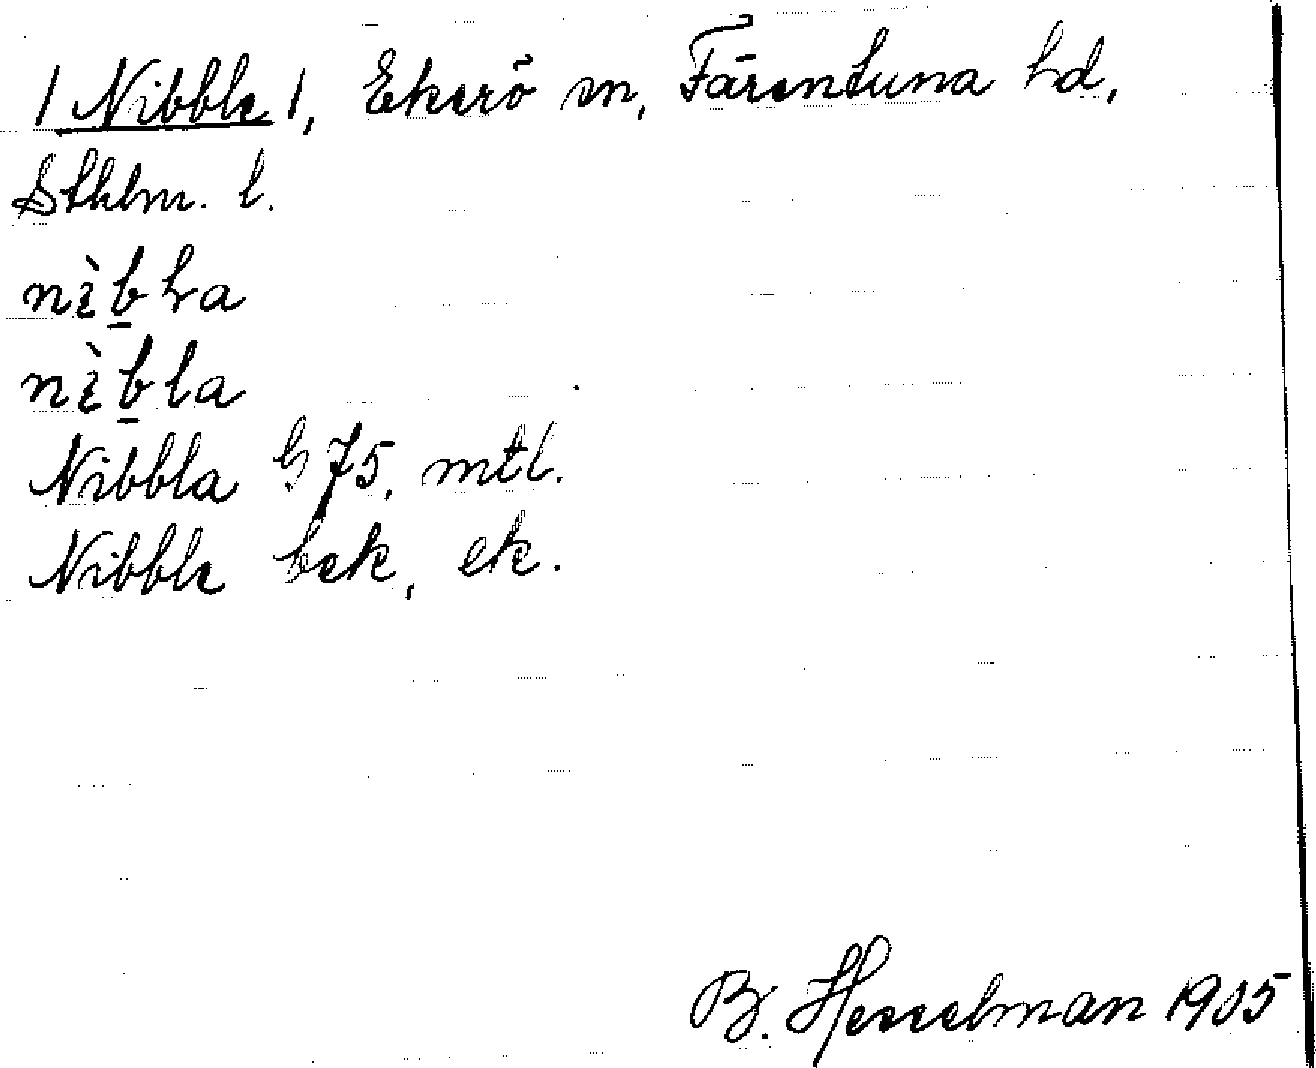 / Nibble /, Ekerö sn, Färentuna hd,
Sthlm. l.
nìbla
Nibbla G 75, mtl.
Nibble bek, ek.
B. Hesselman 1905